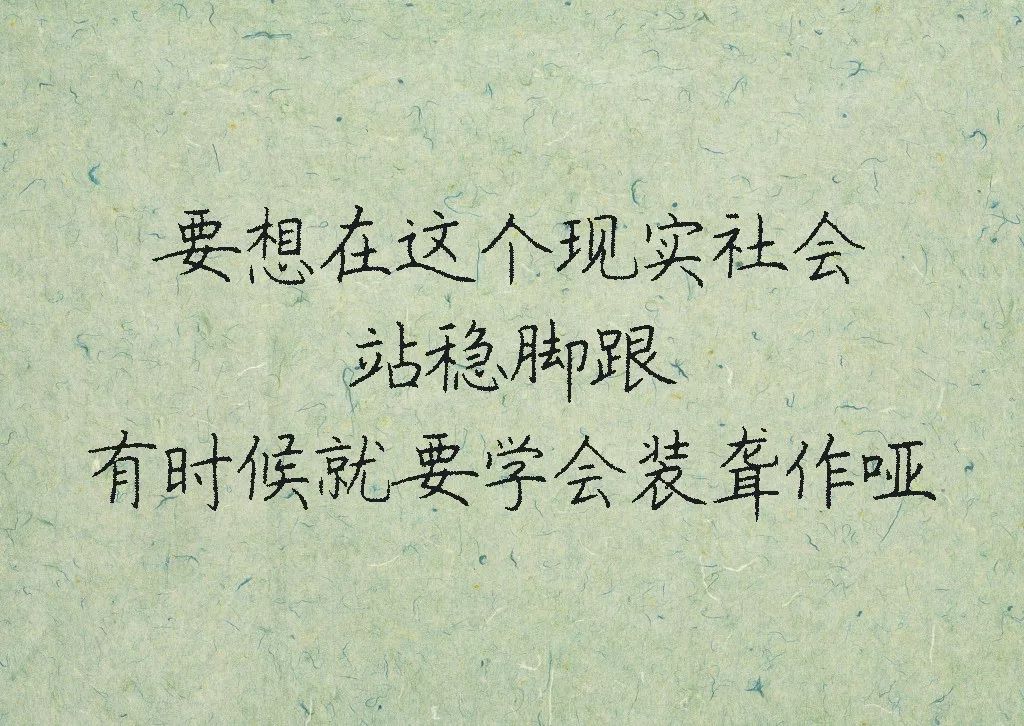 要想在这个现实社会
站稳脚跟
有时候就要学会装聋作哑